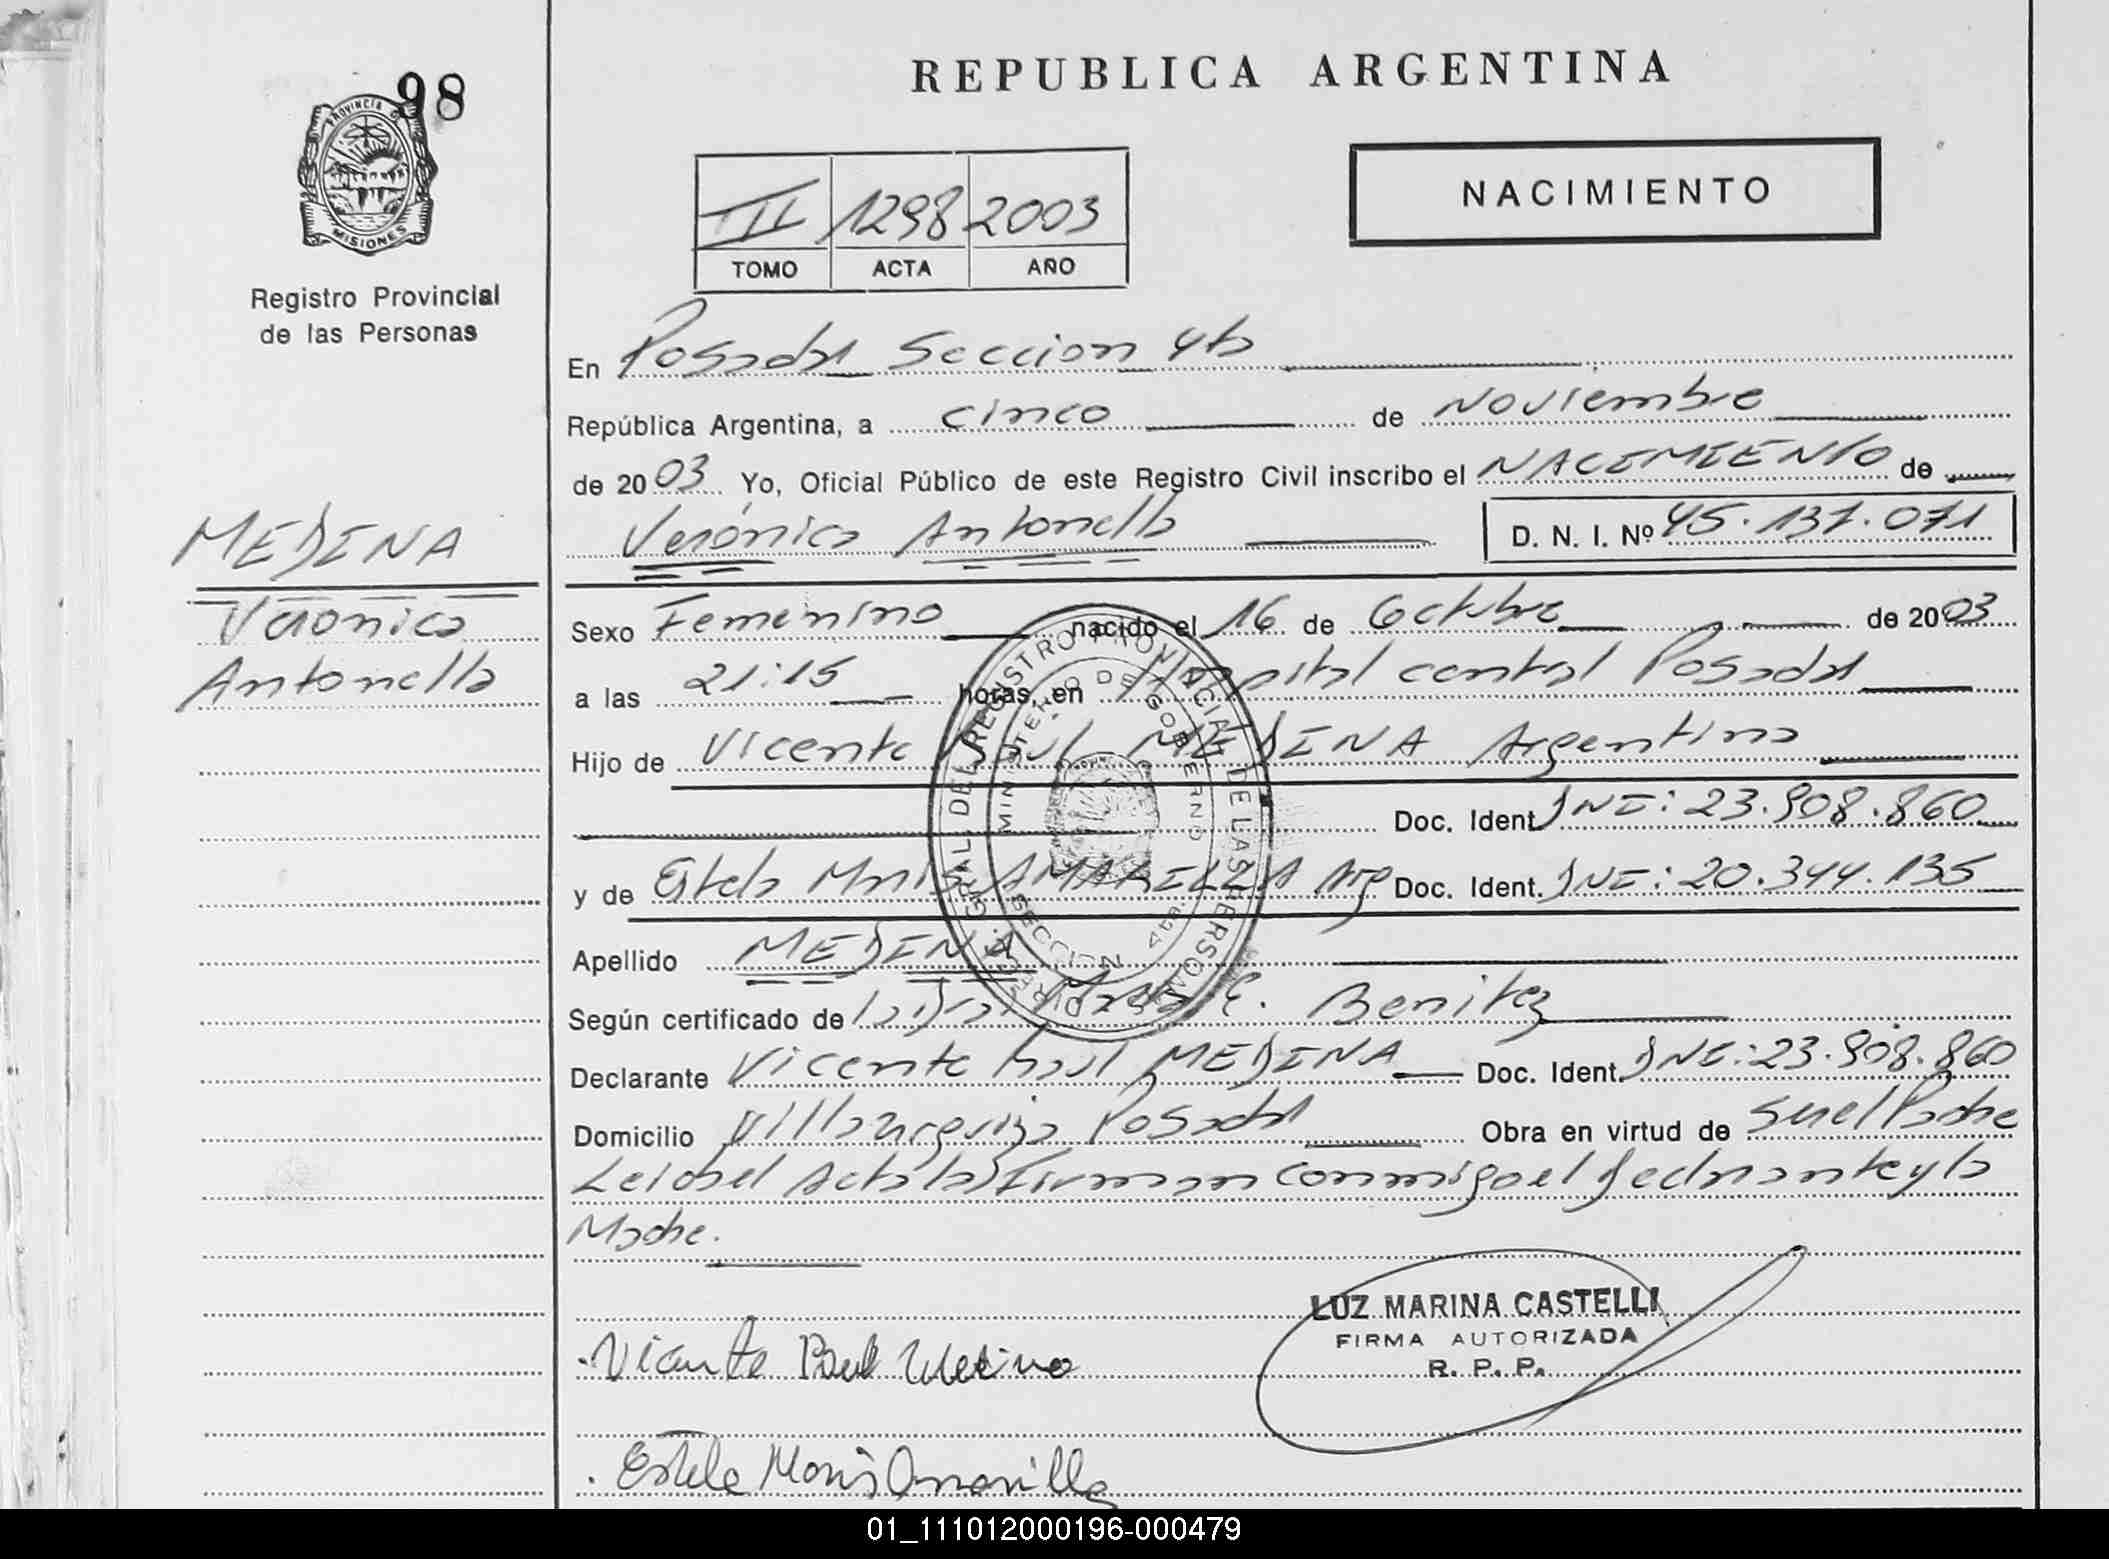 98
PROVINCIA DE
MISIONES
Registro Provincial
de las Personas
MEDINA
Verónica
Antonella
REPUBLICA ARGENTINA
III 1298 2003
TOMO ACTA AÑO
NACIMIENTO
En Posadas Seccion 4ta
República Argentina, a cinco de Noviembre
de 2003 Yo, Oficial Público de este Registro Civil inscribo el NACIMIENTO de
Verónica Antonella D. N. I. Nº 45.137.071
Sexo Femenino nacido el 16 de Octubre de 2003
a las 21:15 horas, en Hospital central Posadas
Hijo de Vicente Raúl MEDINA Argentino
Doc. Ident. DNI: 23.908.860
y de Estela Maris AMARILLA Arg Doc. Ident. DNI: 20.344.135
Apellido MEDINA
Según certificado de E. Benitez
Declarante Vicente Raul MEDINA Doc. Ident. DNI: 23.908.860
Domicilio Villa Urquiza Posadas Obra en virtud de Ser el Padre
Leida el Acta la Firman conmigo el Declarante y la
Madre.
DIREC. GRAL. DEL REGISTRO PROVINCIAL DE LAS PERSONAS
MINISTERIO DE GOBIERNO
SECCION 4ta.
LUZ MARINA CASTELLI
FIRMA AUTORIZADA
R. P. P.
Vicente Raul Medina
Estela Maris Amarilla
01_111012000196-000479